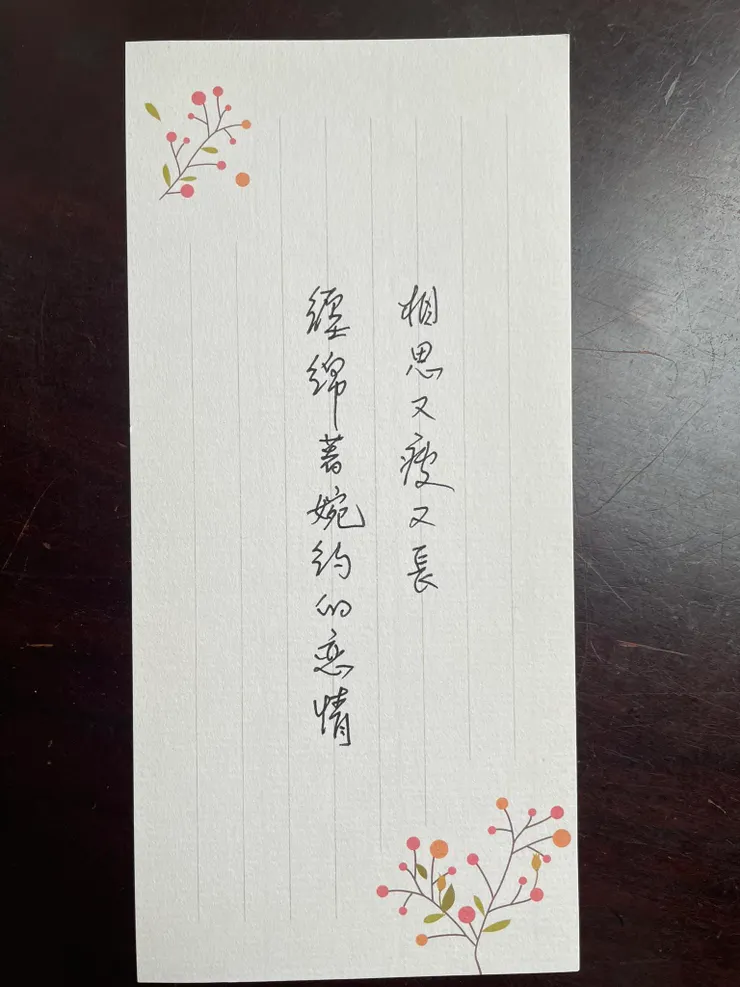 相思又瘦又長
纏綿著婉约的恋情